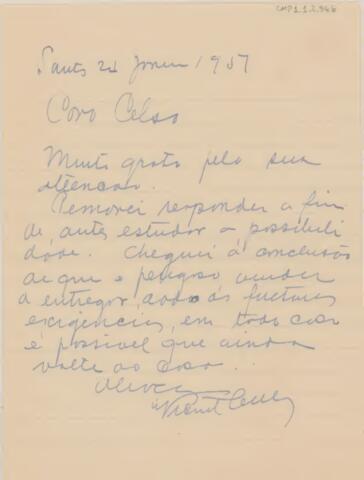 CMP1.1.2.346
Santos 24 1957
Caro Celso
Muito grato pela sua
attenção.
Demorei responder a fim
de, antes estudar a possibili
dade. Cheguei á conclusão
de que é perigoso vender
a entregar, dado ás futuras
exigencias, em todo caso
é possivel que ainda
volte ao caso.